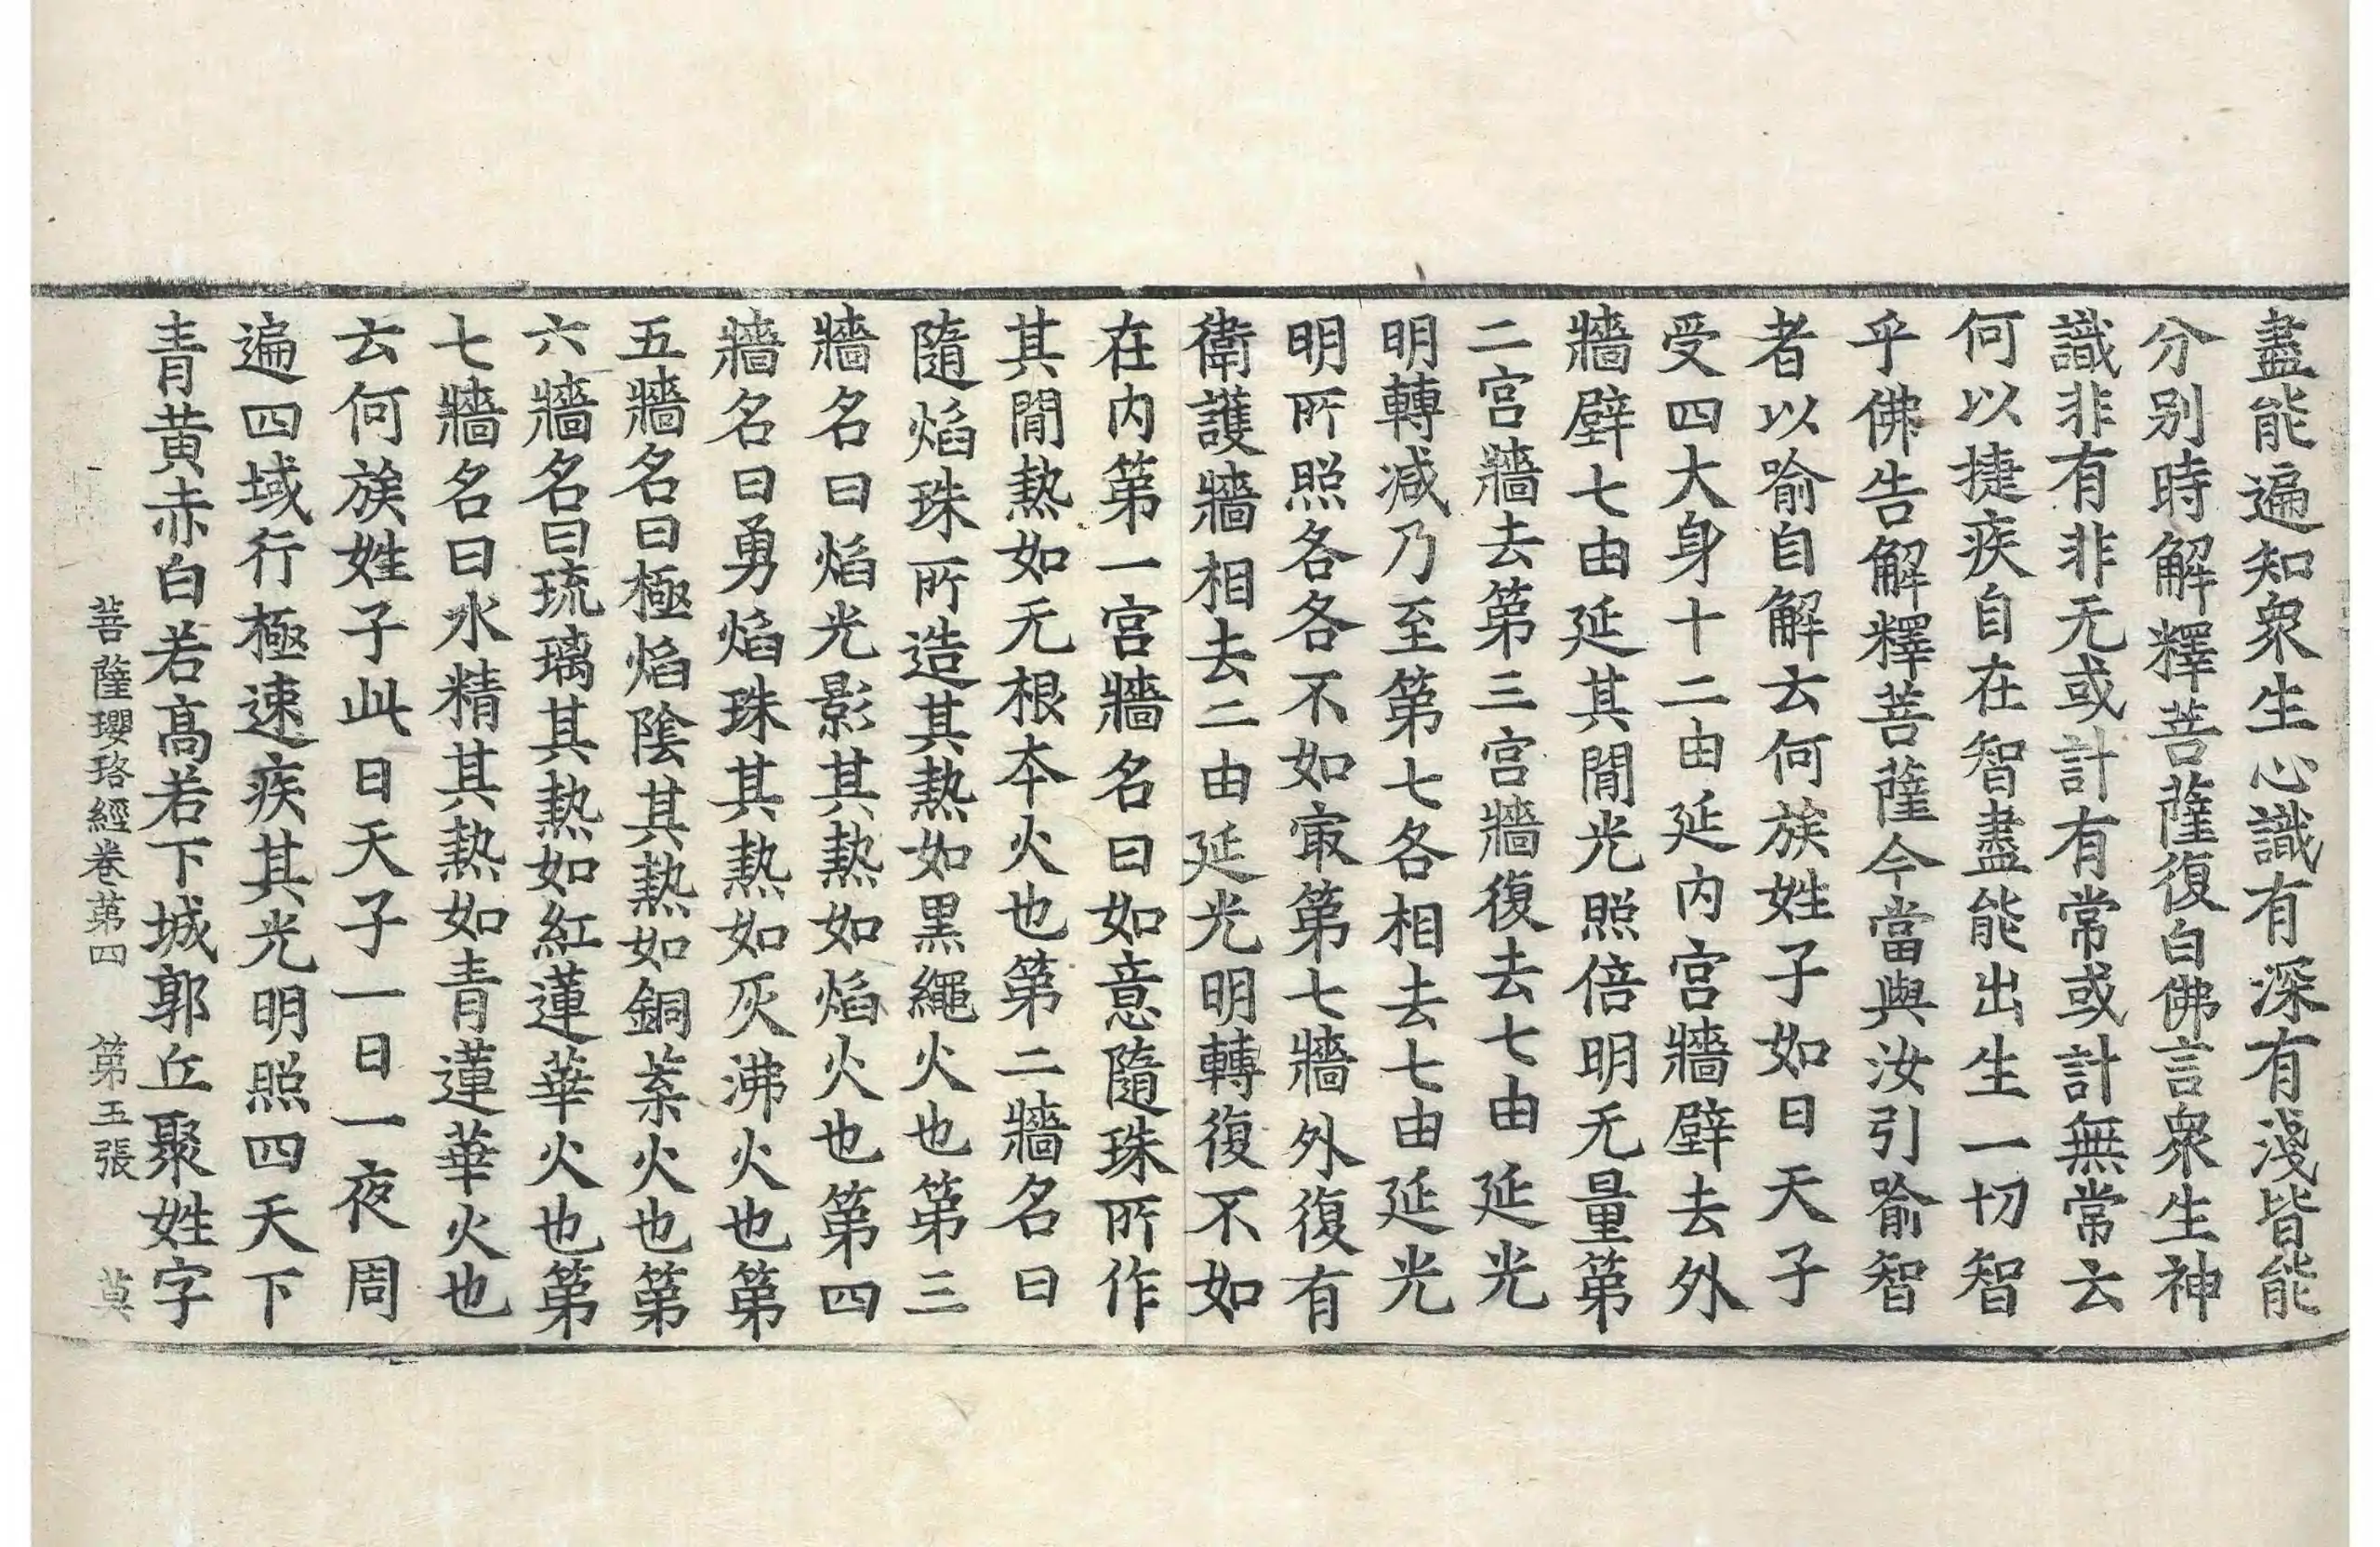 盡能遍知衆生心識有深有淺皆能
分别時解釋菩薩復白佛言衆生神
識非有非无或計有常或計無常云
何以捷疾自在智盡能出生一切智
乎佛告解釋菩薩今當與汝引喻智
者以喻自解云何族姓子如日天子
受四大身十二由延内宫牆壁去外
牆壁七由延其閒光照倍明无量第
二宫牆去第三宫牆復去七由延光
明轉减乃至第七各相去七由延光
明所照各各不如㝡第七牆外復有
衛護牆相去二由延光明轉復不如
在内第一宫牆名曰如意隨珠所作
其閒熱如无根本火也第二牆名曰
隨焰珠所造其熱如黒繩火也第三
牆名曰焰光影其熱如焰火也第四
牆名曰勇焰珠其熱如灰沸火也第
五牆名曰極焰陰其熱如銅葉火也第
六牆名曰琉璃其熱如紅蓮華火也第
七牆名曰水精其熱如青蓮華火也
云何族姓子此日天子一日一夜周
遍四域行極速疾其光明照四天下
青黄赤白若髙若下城郭丘聚姓字
菩薩瓔珞經卷第四 第五張 莫